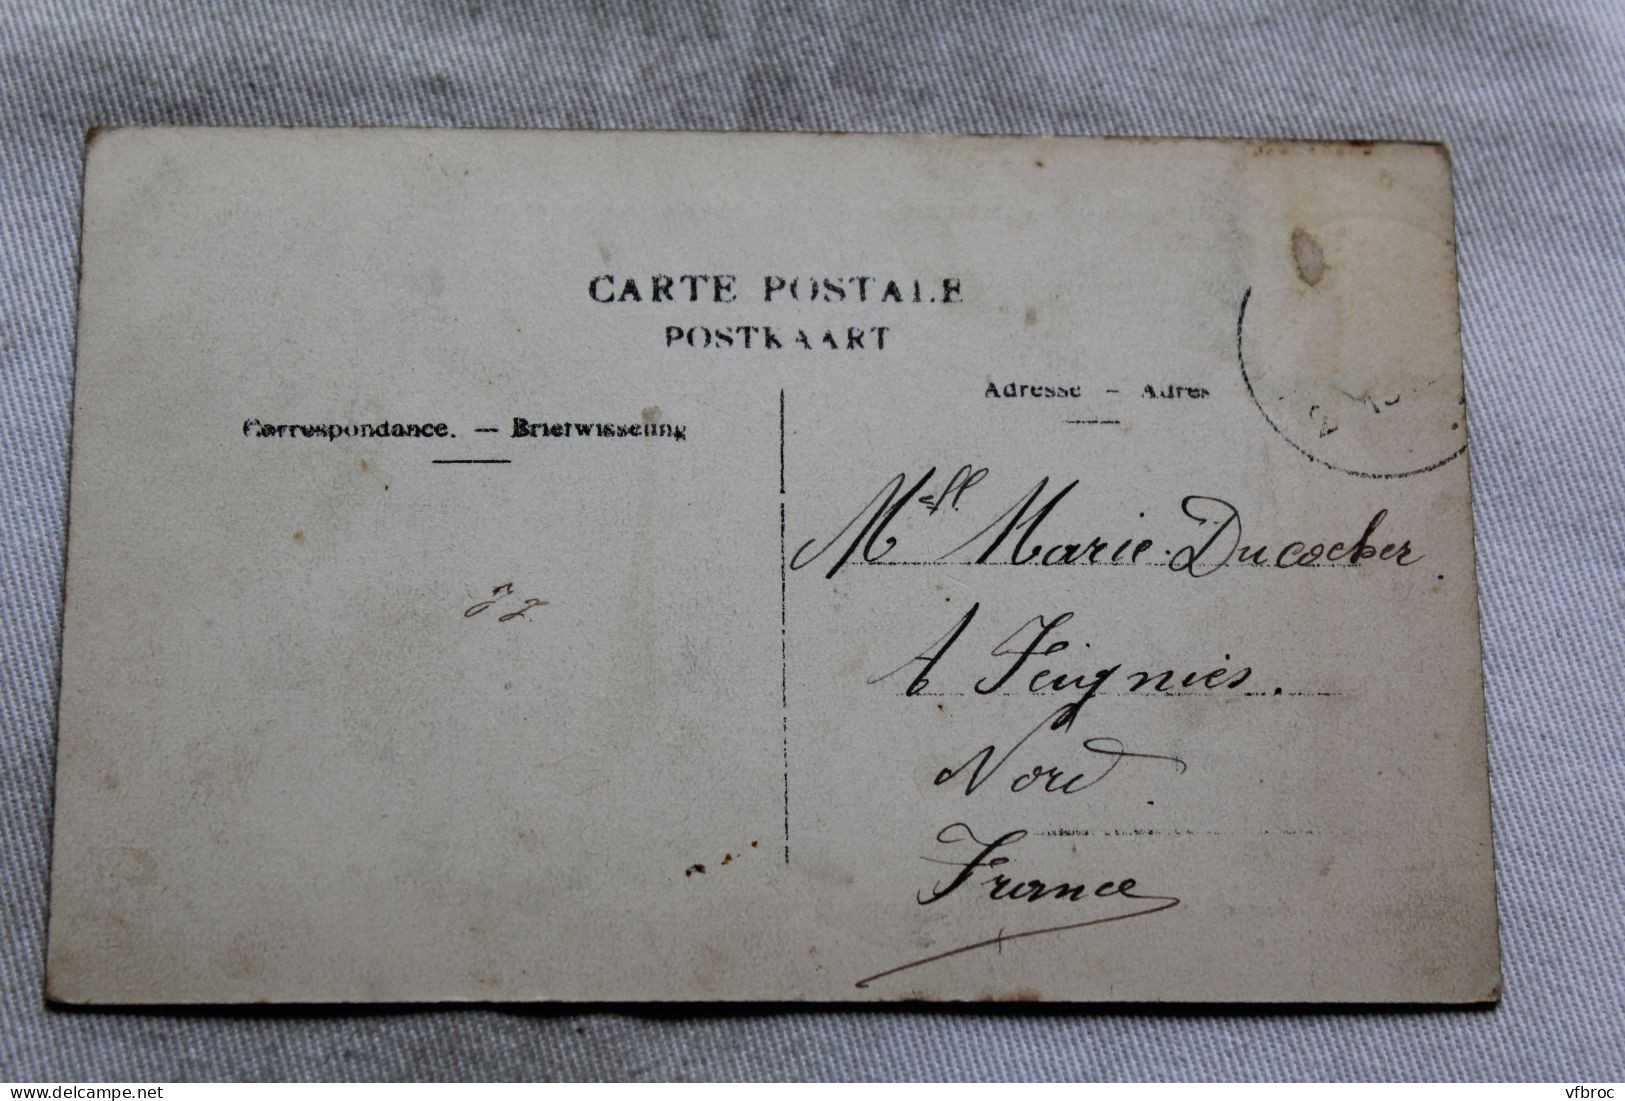 CARTE POSTALE
POSTKAART
Correspondance. — Briefwisseling
Adresse – Adres
Mell Marie Ducocher.
A Feignies.
Nord.
France
delcampe.net
vfbroc